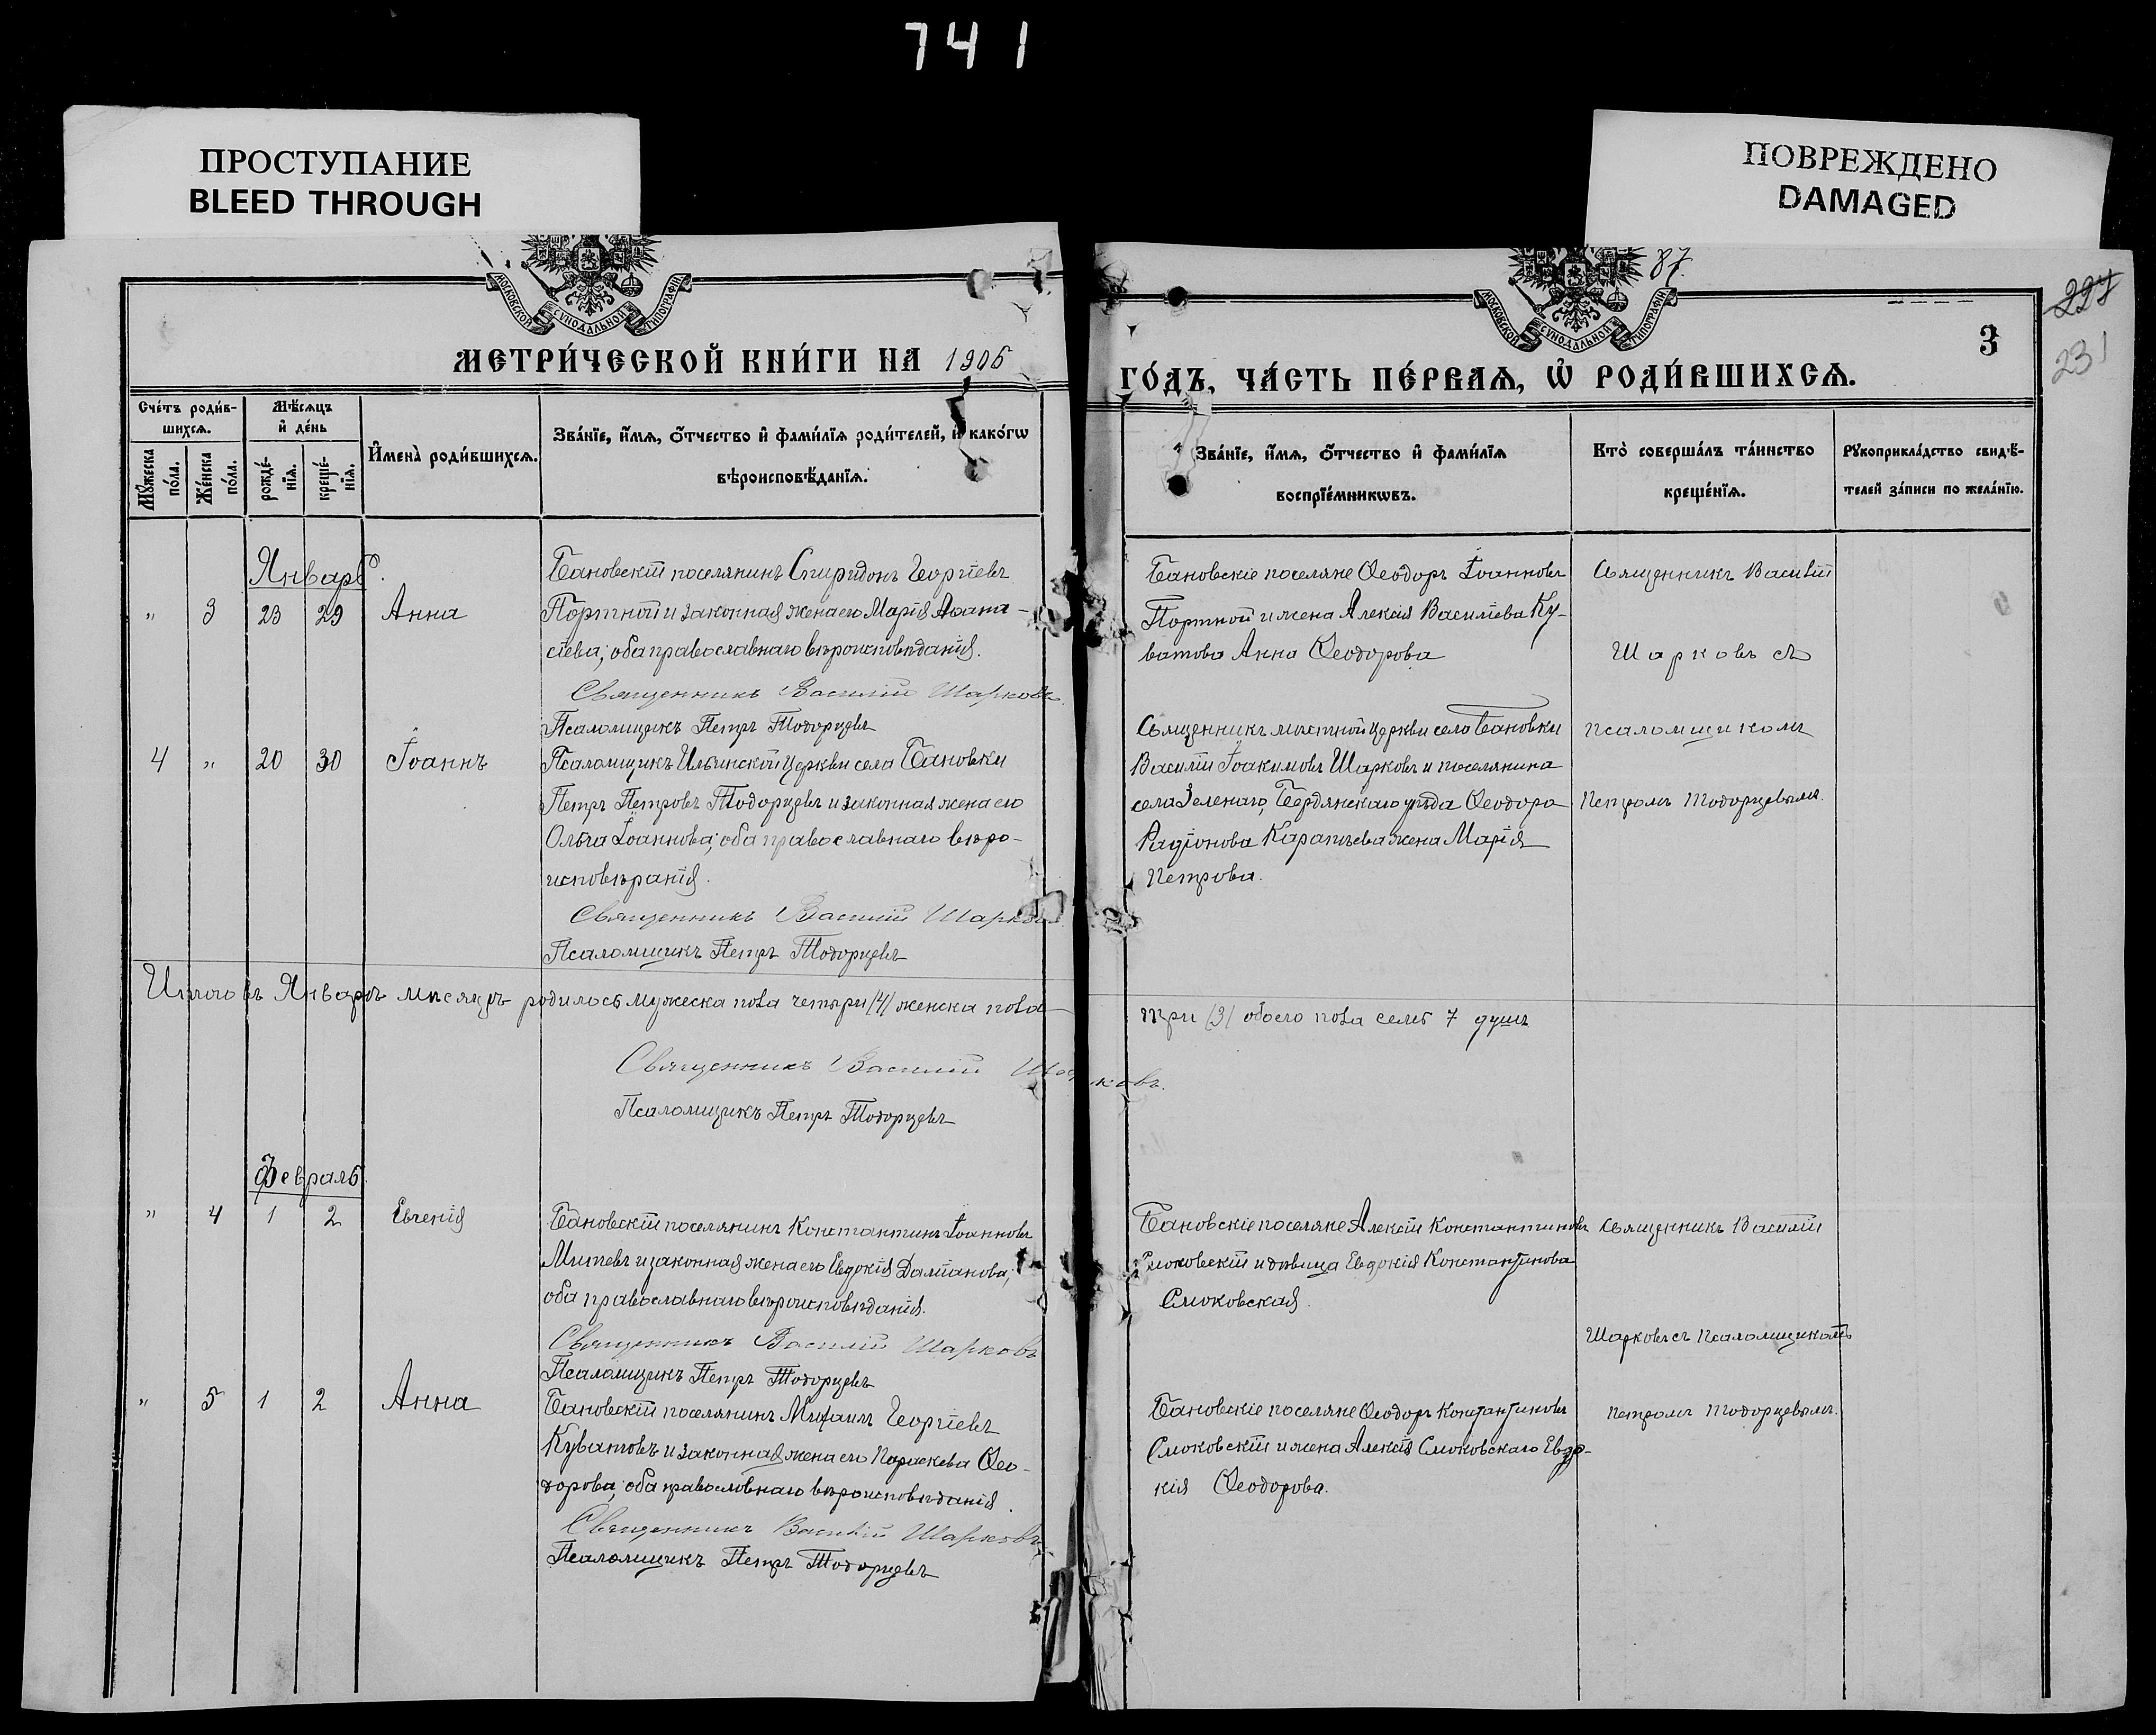 741
ПРОСТУПАНИЕ
BLEED THROUGH
ПОВРЕЖДЕНО
DAMAGED
МОСКОВСКОЙ СУНОДАЛЬНОЙ ТИПОГРАФІИ
МОСКОВСКОЙ СУНОДАЛЬНОЙ ТИПОГРАФІИ
87.
227
231
3
МЕТРИ́ЧЕСКОЙ КНИ́ГИ НА 1906
ГО́ДЪ, ЧА́СТЬ ПЕ́РВАЯ, Ѡ РОДИ́ВШИХСЯ.
Сче́тъ роди́в-
шихся.
Мѣ́сяцъ
и҆ де́нь
Мꙋ́жеска по́ла.
Же́нска по́ла.
рожде́-нїя.
креще́-нїя.
И҆мена̀ роди́вшихся.
Зва́нїе, и҆́мя, ѻ҆́тчество и҆ фами́лїя роди́телей, и҆ како́гѡ
вѣроисповѣ́данїя.
Зва́нїе, и҆́мя, ѻ҆́тчество и҆ фами́лїя
воспрїе́мникѡвъ.
Кто̀ соверша́лъ та́инство
креще́нїя.
Рꙋкоприкла́дство свидѣ́-
телей за́писи по жела́нїю.
Январь.
" 3 23 29 Анна
Бановскій поселянинъ Спиридонъ Георгіевъ
Портной и законная жена его Марія Аѳана-
сіева; оба православнаго вѣроисповѣданія.
Священникъ Василій Шарковъ
Псаломщикъ Петръ Тодорцевъ
Бановскіе поселяне Ѳеодоръ Іоанновъ
Портной и жена Алексія Василіева Ку-
ватова Анна Ѳеодорова
Священникъ Василій
Шарковъ съ
4 " 20 30 Іоаннъ
Псаломщикъ Ильинской церкви села Бановки
Петръ Петровъ Тодорцевъ и законная жена его
Ольга Іоаннова; оба православнаго вѣро-
исповѣданія.
Священникъ Василій Шарковъ
Псаломщикъ Петръ Тодорцевъ
Священникъ мѣстной церкви села Бановки
Василій Іоакимовъ Шарковъ и поселянина
села Зеленаго, Бердянскаго уѣзда Ѳеодора
Радіонова Каратѣева жена Марія
Петрова.
псаломщикомъ
Петромъ Тодорцевымъ.
Итого въ Январѣ мѣсяцѣ родилось мужеска пола четыри (4) женска пола
три (3) обоего пола семь 7 душъ
Священникъ Василій Шарковъ.
Псаломщикъ Петръ Тодорцевъ
Февраль.
" 4 1 2 Евгенія
Бановскій поселянинъ Константинъ Іоанновъ
Митевъ и законная жена его Евдокія Даміанова;
оба православнаго вѣроисповѣданія.
Священникъ Василій Шарковъ
Псаломщикъ Петръ Тодорцевъ
Бановскіе поселяне Алексій Константиновъ
Смоковскій и дѣвица Евдокія Константинова
Смоковская.
Священникъ Василій
Шарковъ съ Псаломщикомъ
" 5 1 2 Анна
Бановскій поселянинъ Михаилъ Георгіевъ
Куватовъ и законная жена его Параскева Ѳео-
дорова; оба православнаго вѣроисповѣданія.
Священникъ Василій Шарковъ
Псаломщикъ Петръ Тодорцевъ
Бановскіе поселяне Ѳеодоръ Константиновъ
Смоковскій и жена Алексія Смоковскаго Евдо-
кія Ѳеодорова.
Петромъ Тодорцевымъ.